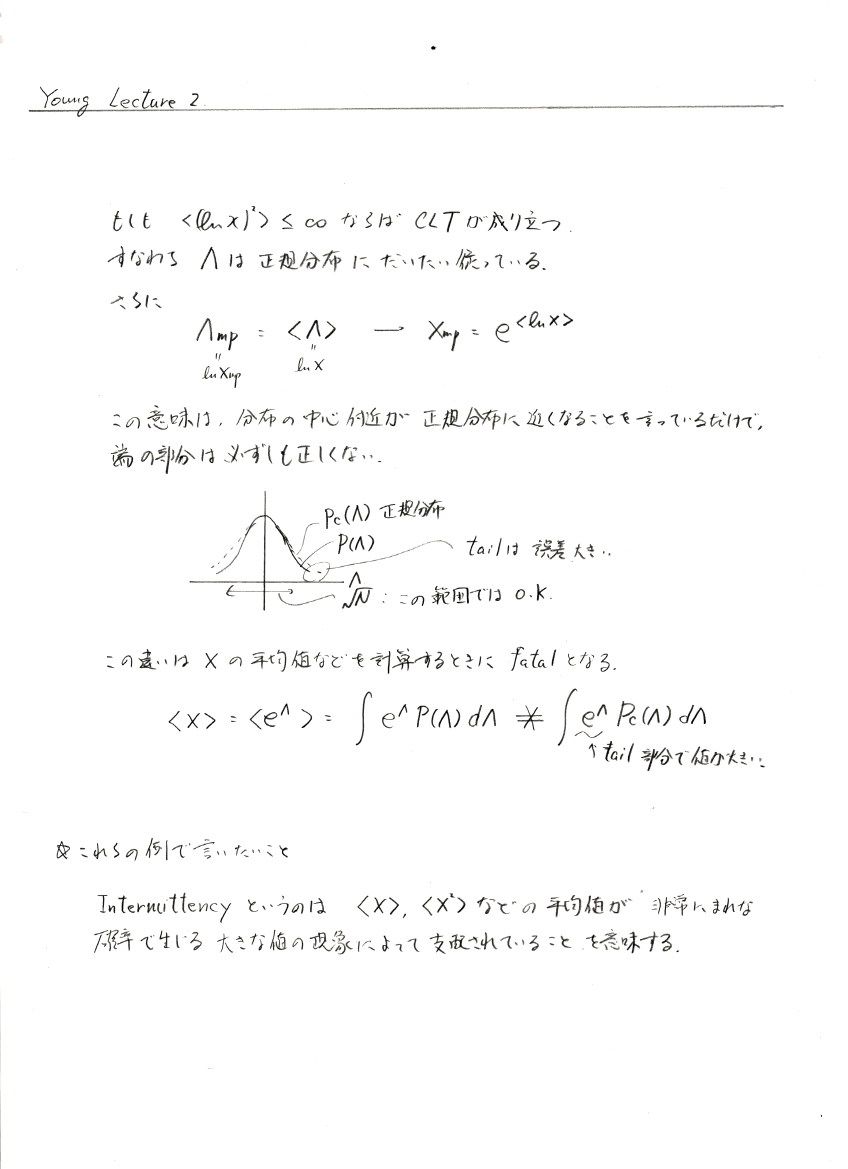 Young Lecture 2
もし <(ln x)²> ≤ ∞ ならば CLT が成り立つ.
すなわち Λ は 正規分布 に だいたい 従っている.
さらに
Λmp = <Λ> → Xmp = e^<ln x>
" "
ln Xmp ln X
この意味は, 分布の中心付近が 正規分布に近くなることを言っているだけで,
端の部分は必ずしも正しくない.
Pc(Λ) 正規分布
P(Λ)
tailは 誤差大きい.
Λ
√N : この範囲では O.K.
この違いは X の平均値などを計算するときに fatal となる.
<X> = <e^Λ> = ∫ e^Λ P(Λ) dΛ ≠ ∫ e^Λ Pc(Λ) dΛ
↑ tail 部分で値が大きい.
☆ これらの例で言いたいこと
Intermittency というのは <X>, <X²> などの平均値が 非常にまれな
確率で生じる 大きな値の現象によって支配されていること を意味する.